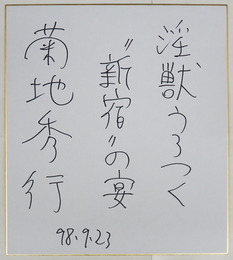 淫獣うろつく
〝新宿〟の宴
菊地秀行
98.9.23